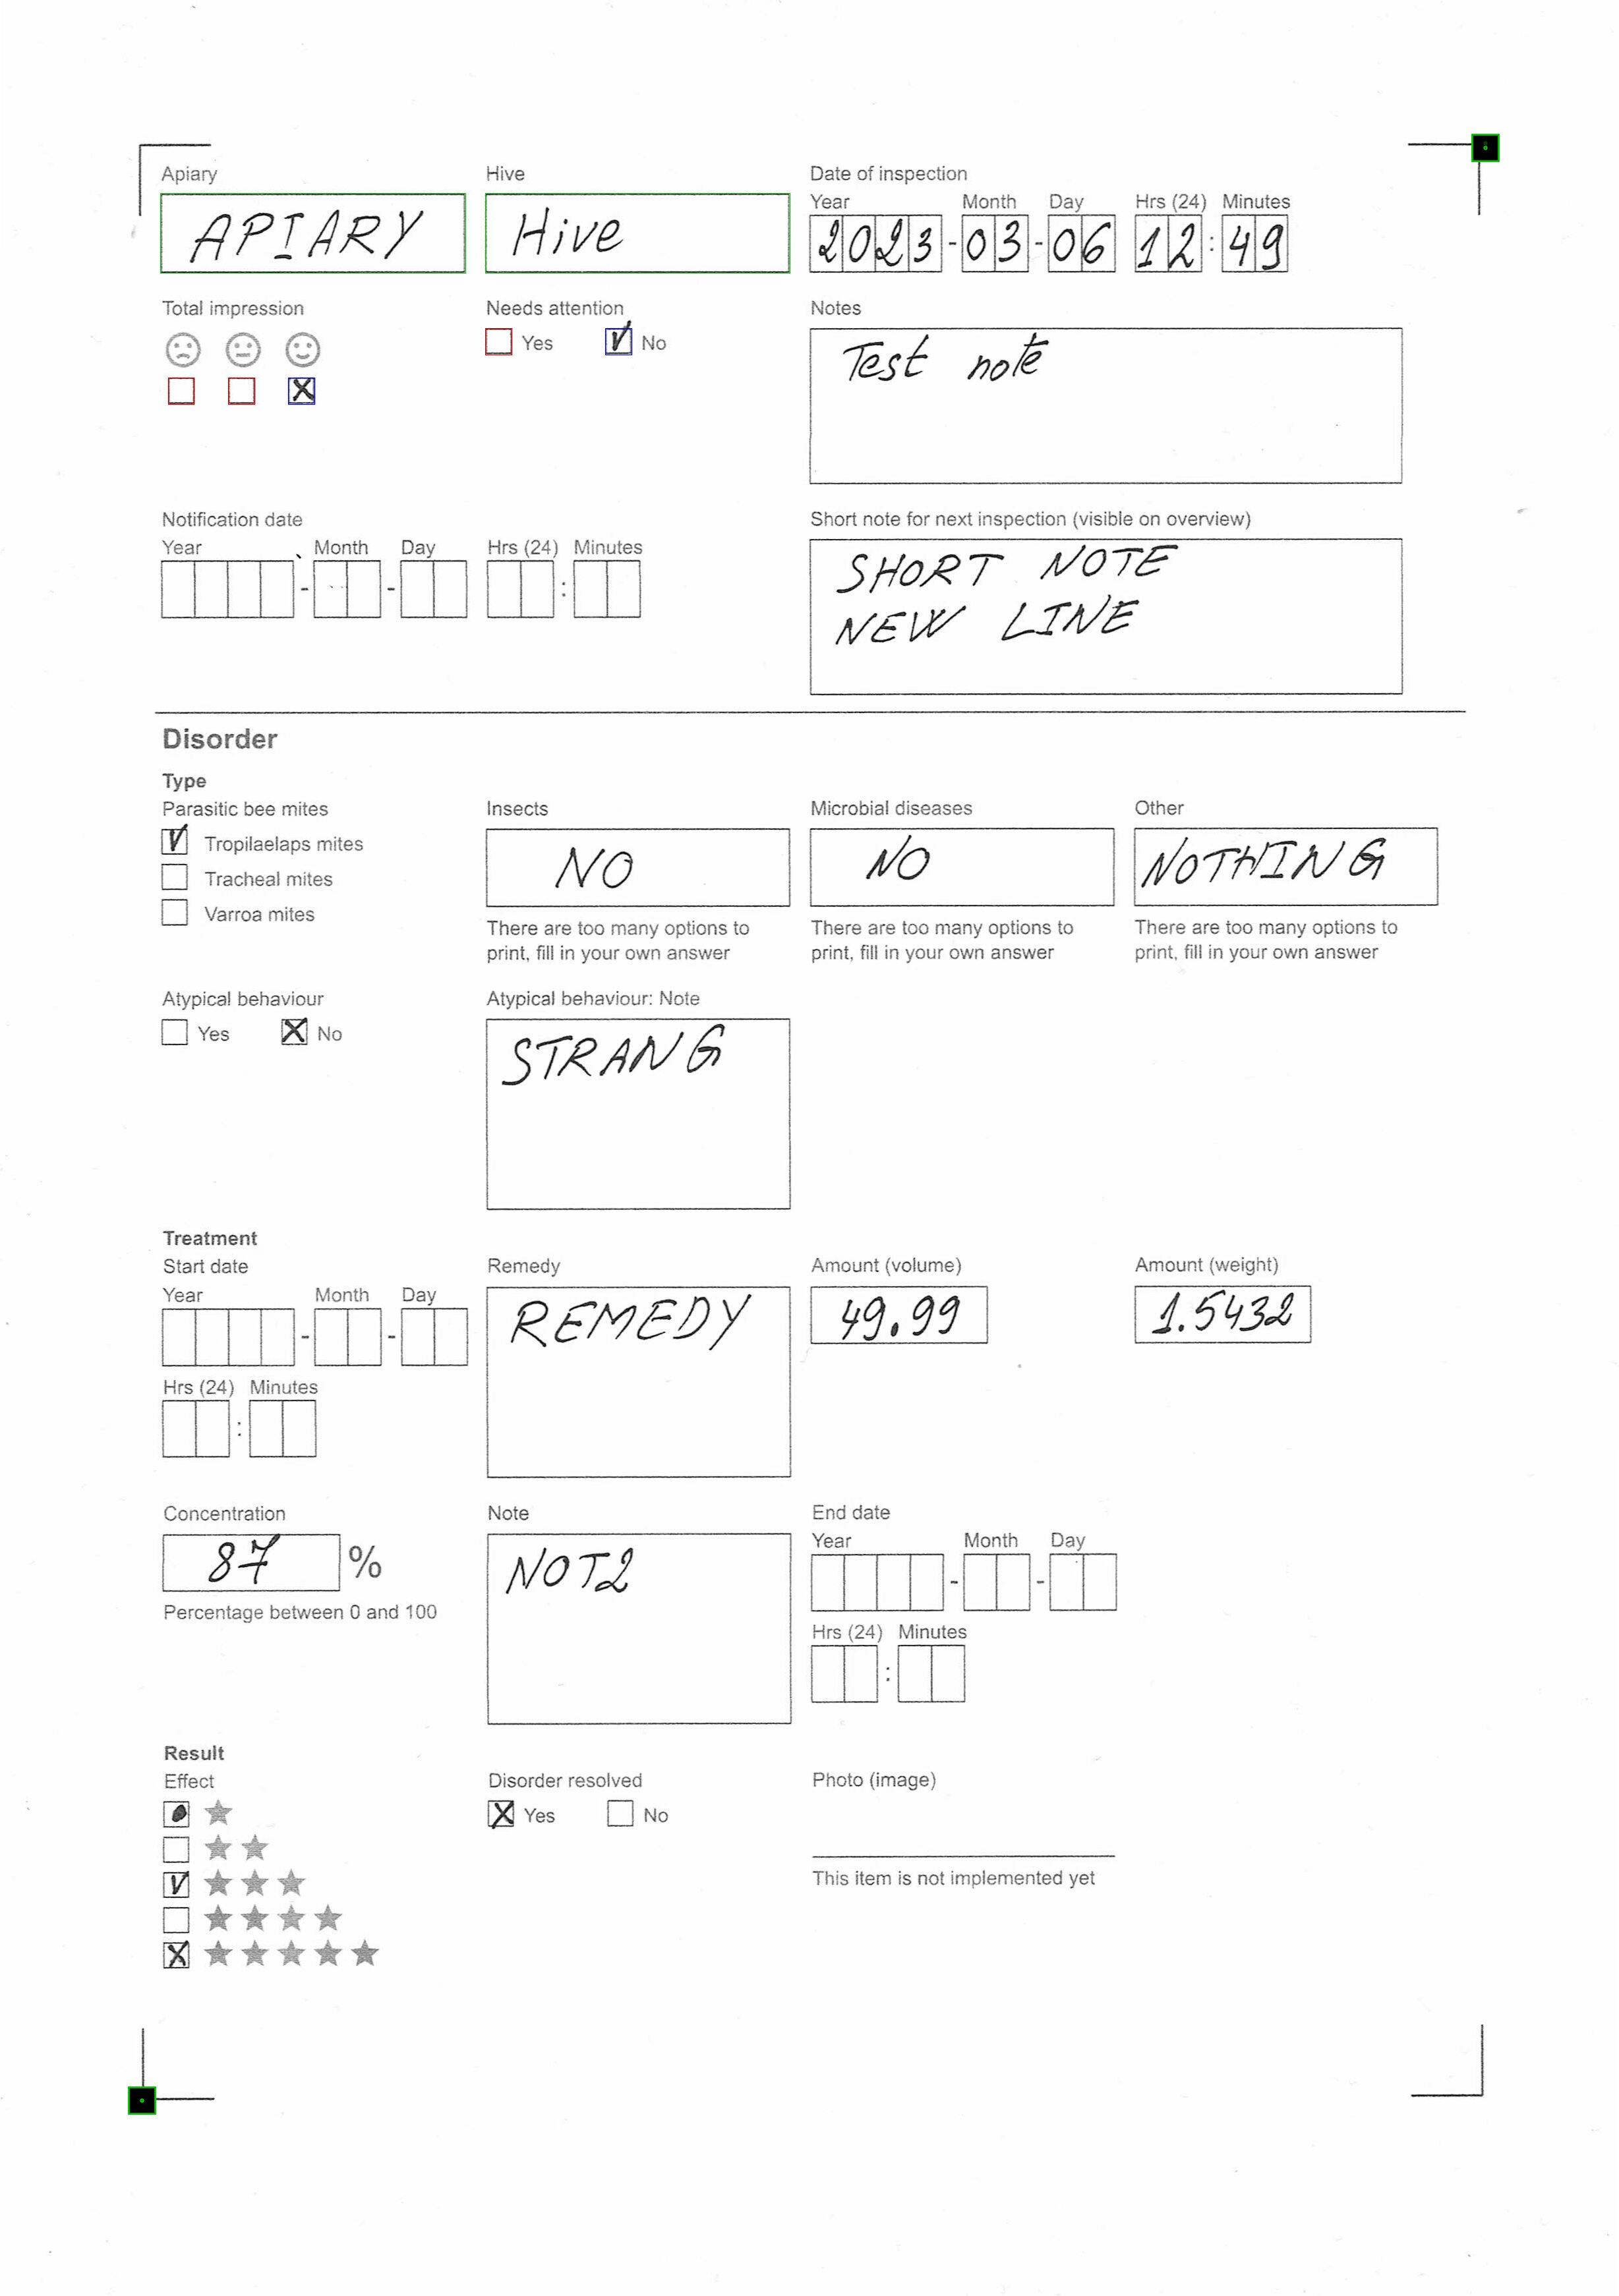 Apiary
APIARY
Hive
Hive
Date of inspection
Year Month Day Hrs (24) Minutes
2023-03-06 12:49
Total impression
Needs attention
Yes No
Notes
Test note
Notification date
Year Month Day Hrs (24) Minutes
- - :
Short note for next inspection (visible on overview)
SHORT NOTE
NEW LINE
Disorder
Type
Parasitic bee mites
Tropilaelaps mites
Tracheal mites
Varroa mites
Insects
NO
There are too many options to
print, fill in your own answer
Microbial diseases
NO
There are too many options to
print, fill in your own answer
Other
NOTHING
There are too many options to
print, fill in your own answer
Atypical behaviour
Yes No
Atypical behaviour: Note
STRANG
Treatment
Start date
Year Month Day
- -
Hrs (24) Minutes
:
Remedy
REMEDY
Amount (volume)
49.99
Amount (weight)
1.5432
Concentration
87 %
Percentage between 0 and 100
Note
NOT2
End date
Year Month Day
- -
Hrs (24) Minutes
:
Result
Effect
Disorder resolved
Yes No
Photo (image)
This item is not implemented yet